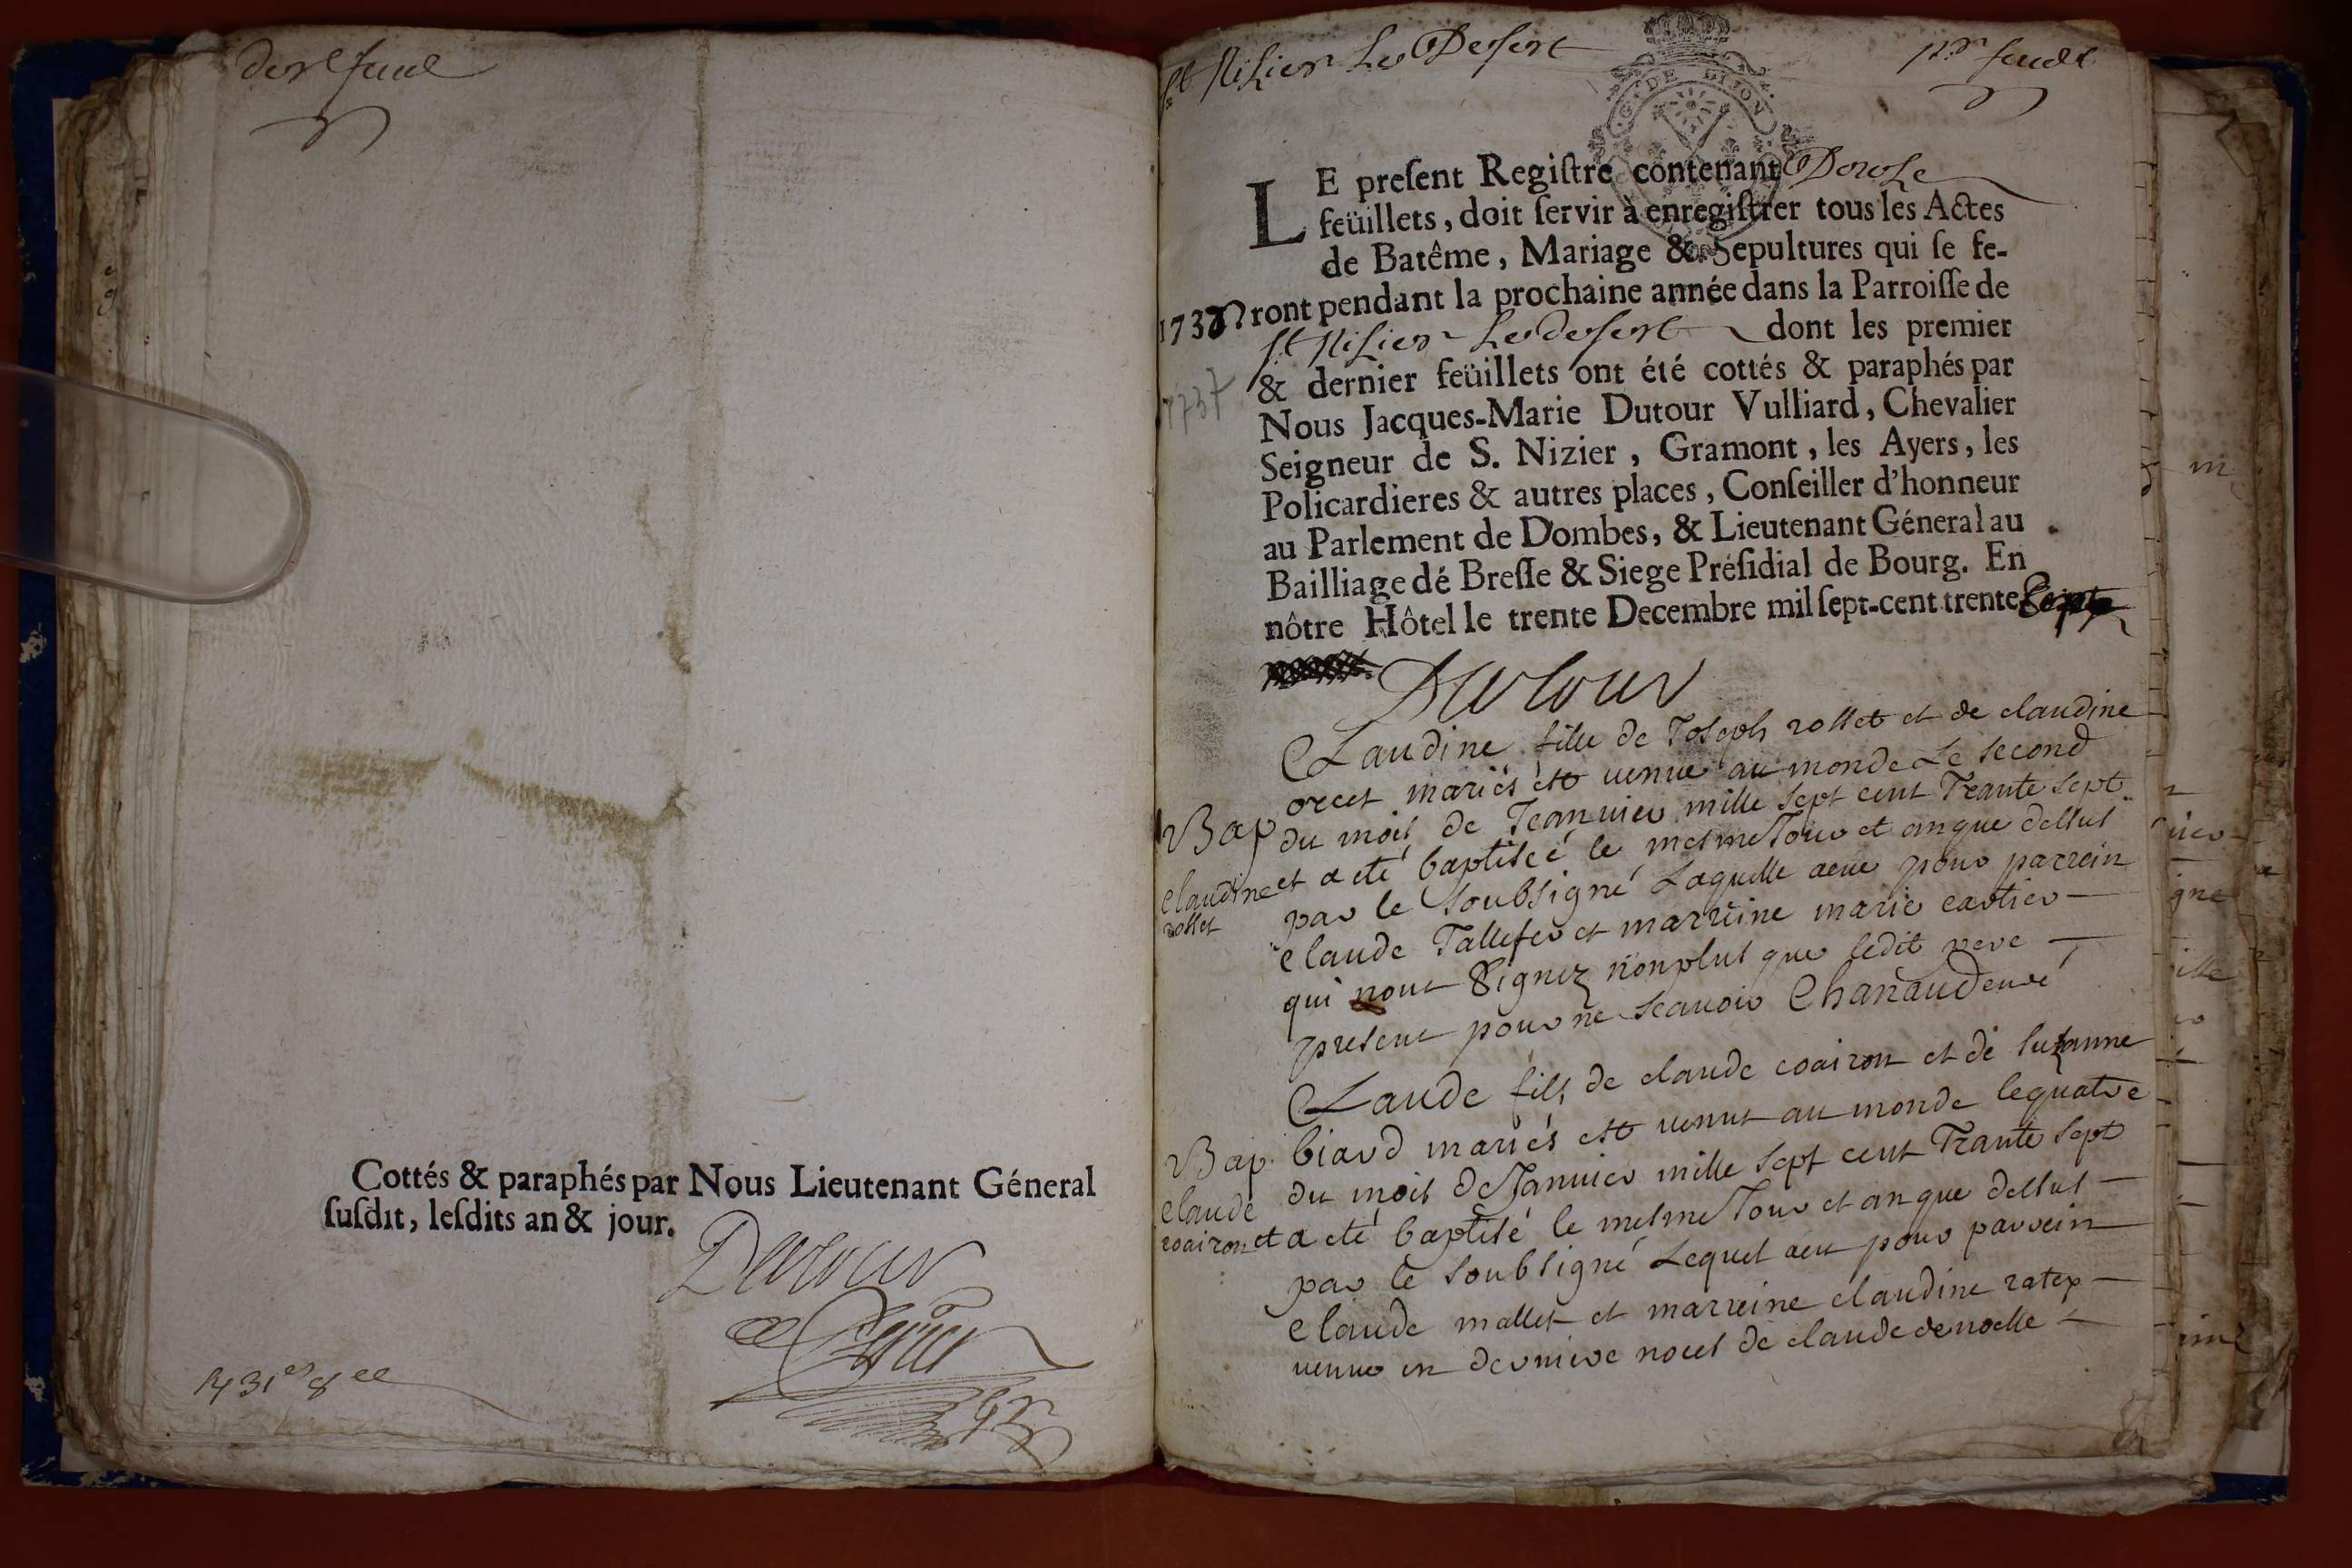 Cottés & paraphés par Nous Lieutenant Géneral
ſuſdit, leſdits an & jour.
Dutour
St Nisier Le Desert
G. DE DIJON
LE preſent Regiſtre contenant Douse
feüillets, doit ſervir à enregiſtrer tous les Actes
de Batême, Mariage & Sepultures qui ſe fe-
1737 ront pendant la prochaine année dans la Parroiſſe de
St Nisier Le desert dont les premier
& dernier feüillets ont été cottés & paraphés par
1737
Nous Jacques-Marie Dutour Vulliard, Chevalier
Seigneur de S. Nizier, Gramont, les Ayers, les
Policardieres & autres places, Conſeiller d'honneur
au Parlement de Dombes, & Lieutenant Géneral au
Bailliage dé Breſſe & Siege Préſidial de Bourg. En
nôtre Hôtel le trente Decembre mil ſept-cent trente
Dutour
Claudine fille de Joseph rollet et de claudine
orcet mariés est venue au monde Le second
Bap
claudine
rollet
du mois de Jeanvier mille sept cent Trante sept
et a eté baptiseé le mesme Jour et an que dessus
par le soubsigné Laquelle aeue pour parrein
claude Tallefer et marreine marie cartier
qui nont signez nonplus que ledit pere
present pour ne scavoir Chanaud curé
Claude fils de claude coairon et de suzanne
biard mariés est venut au monde le quatre
Bap
claude
coairon
du mois de Janvier mille sept cent Trante sept
et a eté baptisé le mesme Jour et an que dessus
par le soubsigné Lequel aeu pour parrein
claude mallet et marreine claudine ratep
venve en derniere noces de claude denoelle